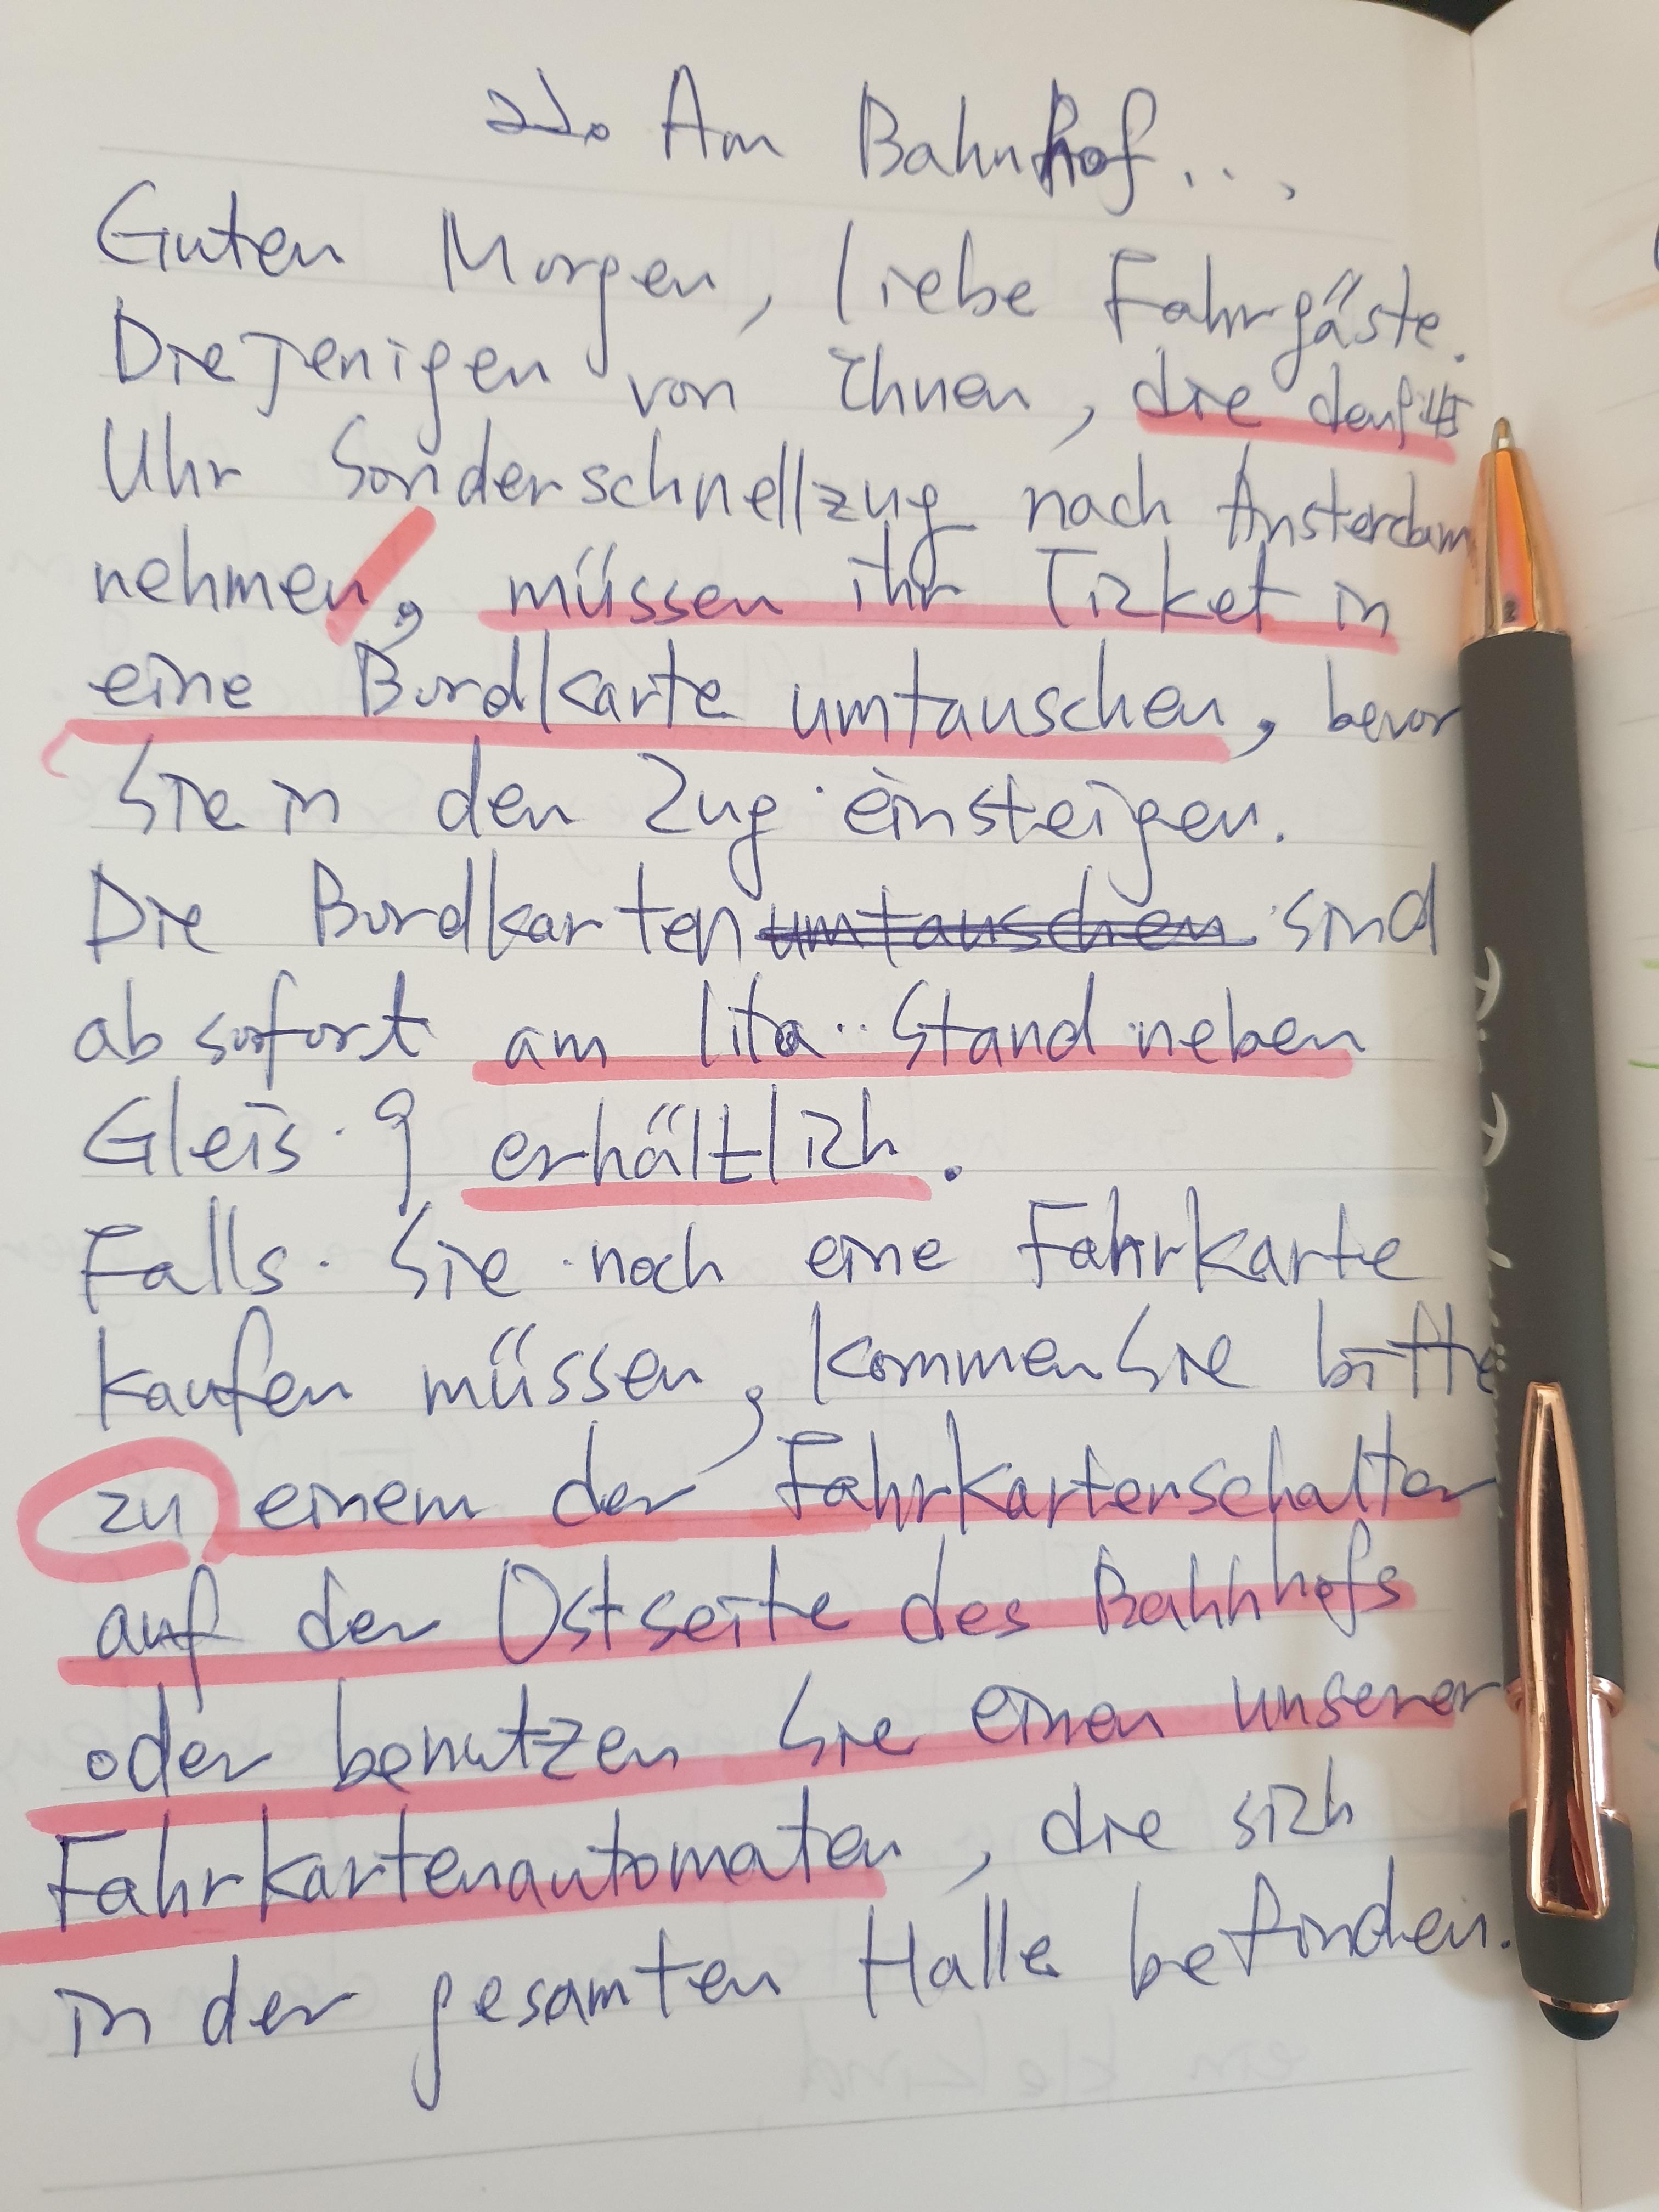 Am Bahnhof...
Guten Morgen, liebe Fahrgäste.
Diejenigen von Ihnen, die den
Uhr Sonderschnellzug nach Amsterdam
nehmen, müssen ihr Ticket in
eine Bordkarte umtauschen, bevor
Sie in den Zug einsteigen.
Die Bordkarten umtauschen sind
ab sofort am lita Stand neben
Gleis 9 erhältlich.
Falls Sie noch eine Fahrkarte
kaufen müssen, kommen Sie bitte
zu einem der Fahrkartenschalter
auf der Ostseite des Bahnhofs
oder benutzen Sie einen unserer
Fahrkartenautomaten, die sich
in der gesamten Halle befinden.